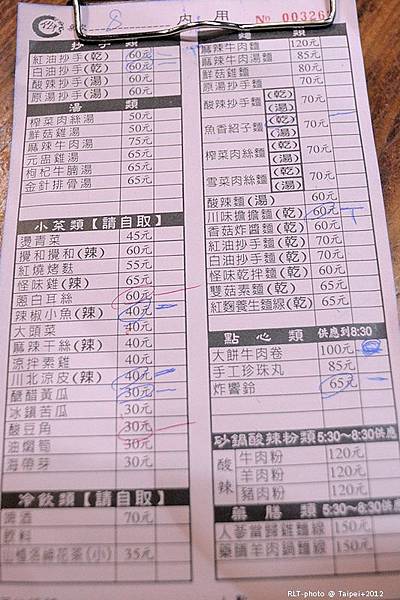 8 內 用 № 00326
抄 手 類
紅油抄手(乾) 60元
白油抄手(乾) 60元
酸辣抄手(湯) 60元
原湯抄手(湯) 60元
湯 類
榨菜肉絲湯 50元
鮮菇雞湯 50元
麻辣牛肉湯 75元
元盅雞湯 65元
枸杞牛腩湯 65元
金針排骨湯 65元
小菜類【請自取】
燙青菜 45元
攪和攪和(辣) 60元
紅燒烤麩 55元
怪味雞(辣) 65元
蔥白耳絲 60元
辣椒小魚(辣) 40元
大頭菜 40元
麻辣干絲(辣) 40元
涼拌素雞 40元
川北涼皮(辣) 40元
醋醋黃瓜 30元
冰鎮苦瓜 30元
酸豆角 30元
油燜筍 30元
海帶芽 30元
冷飲類【請自取】
啤酒 70元
飲料
山楂洛神花茶(小) 35元
麵 類
麻辣牛肉麵 120元
麻辣牛肉湯麵 85元
鮮菇雞麵 80元
原湯抄手麵 70元
酸辣抄手麵 (乾) (湯) 70元
魚香紹子麵 (乾) (湯) 70元
榨菜肉絲麵 (乾) (湯) 70元
雪菜肉絲麵 (乾) (湯) 70元
酸辣麵(湯) 60元
川味擔擔麵(乾) 60元
香菇炸醬麵(乾) 60元
紅油抄手麵(乾) 70元
白油抄手麵(乾) 70元
怪味乾拌麵(乾) 60元
雙菇素麵(乾) 65元
紅麴養生麵線(乾) 65元
點 心 類 供應到8:30
大餅牛肉卷 100元
手工珍珠丸 85元
炸響鈴 65元
砂鍋酸辣粉類 5:30~8:30供應
酸辣 牛肉粉 120元
羊肉粉 120元
豬肉粉 120元
藥 膳 類 5:30~8:30供應
人蔘當歸雞麵線 150元
藥燉羊肉鍋麵線 150元
RLT-photo @ Taipei+2012